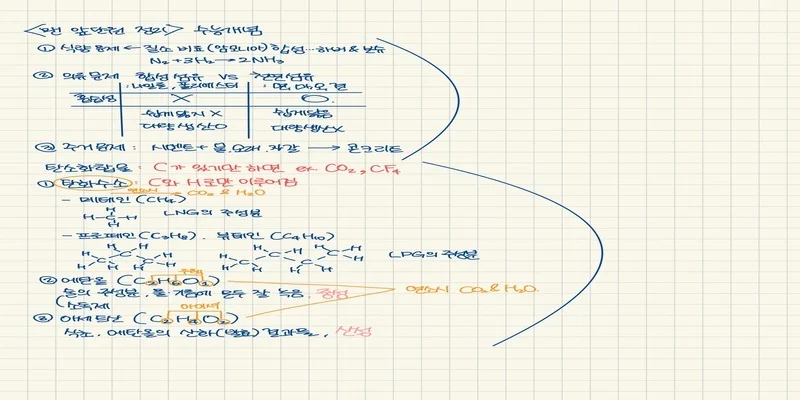 <맨 앞단원 정리> 수능개념
① 식량문제 ← 질소 비료(암모니아) 합성… 하버 & 보슈
N₂ + 3H₂ → 2NH₃
② 의류문제 합성섬유 vs 천연섬유
: 나일론, 폴리에스터 : 면, 마, 모, 견
흡습성 X ○
쉽게 닳지 X 쉽게 닳음
대량생산○ 대량생산X
③ 주거문제 : 시멘트 + 물, 모래, 자갈 → 콘크리트
탄소화합물 : C가 있기만 하면 ex CO₂, CF₄
① 탄화수소 : C와 H로만 이루어짐
연소시 CO₂ & H₂O
- 메테인 (CH₄)
H
H-C-H LNG의 주성분
H
- 프로페인 (C₃H₈), 뷰테인 (C₄H₁₀)
LPG의 주성분
② 에탄올 (C₂H₆O₁)
술의 주성분, 물·기름에 모두 잘 녹음, 중성 연소시 CO₂ & H₂O
소독제
③ 아세트산 (C₂H₄O₂)
식초, 에탄올의 산화(발효) 결과물, 산성